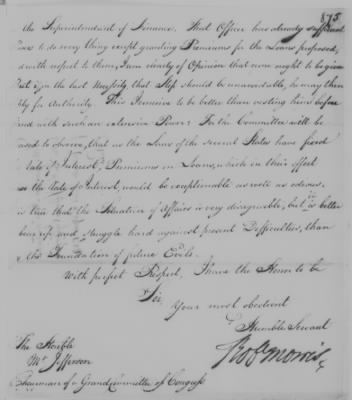 875
the Superintendant of Finance. That Officer has already sufficient
to do every thing except granting Premiums for the Loans proposed
with respect to them, I am clearly of Opinion that none ought to be given
in the last Necessity, that Step should be unavoidable, he may then
for Authority. This I conceive to be better than vesting him before
with such an extensive Power. For the Committee will be
to observe, that as the Laws of the several States have fixed
rate of Interest, Premiums on Loans, which in their effect
the Rate of Interest, would be exceptionable as well as odious.
is true that the Situation of Affairs is very disagreeable, but is better
and struggle hard against present Difficulties, than
the Foundation of future Evils.
With perfect Respect, I have the Honor to be
Sir
Your most obedient
& Humble Servant
Robt Morris
The Honble
Mr Jefferson
Chairman of Grand Committee of Congress